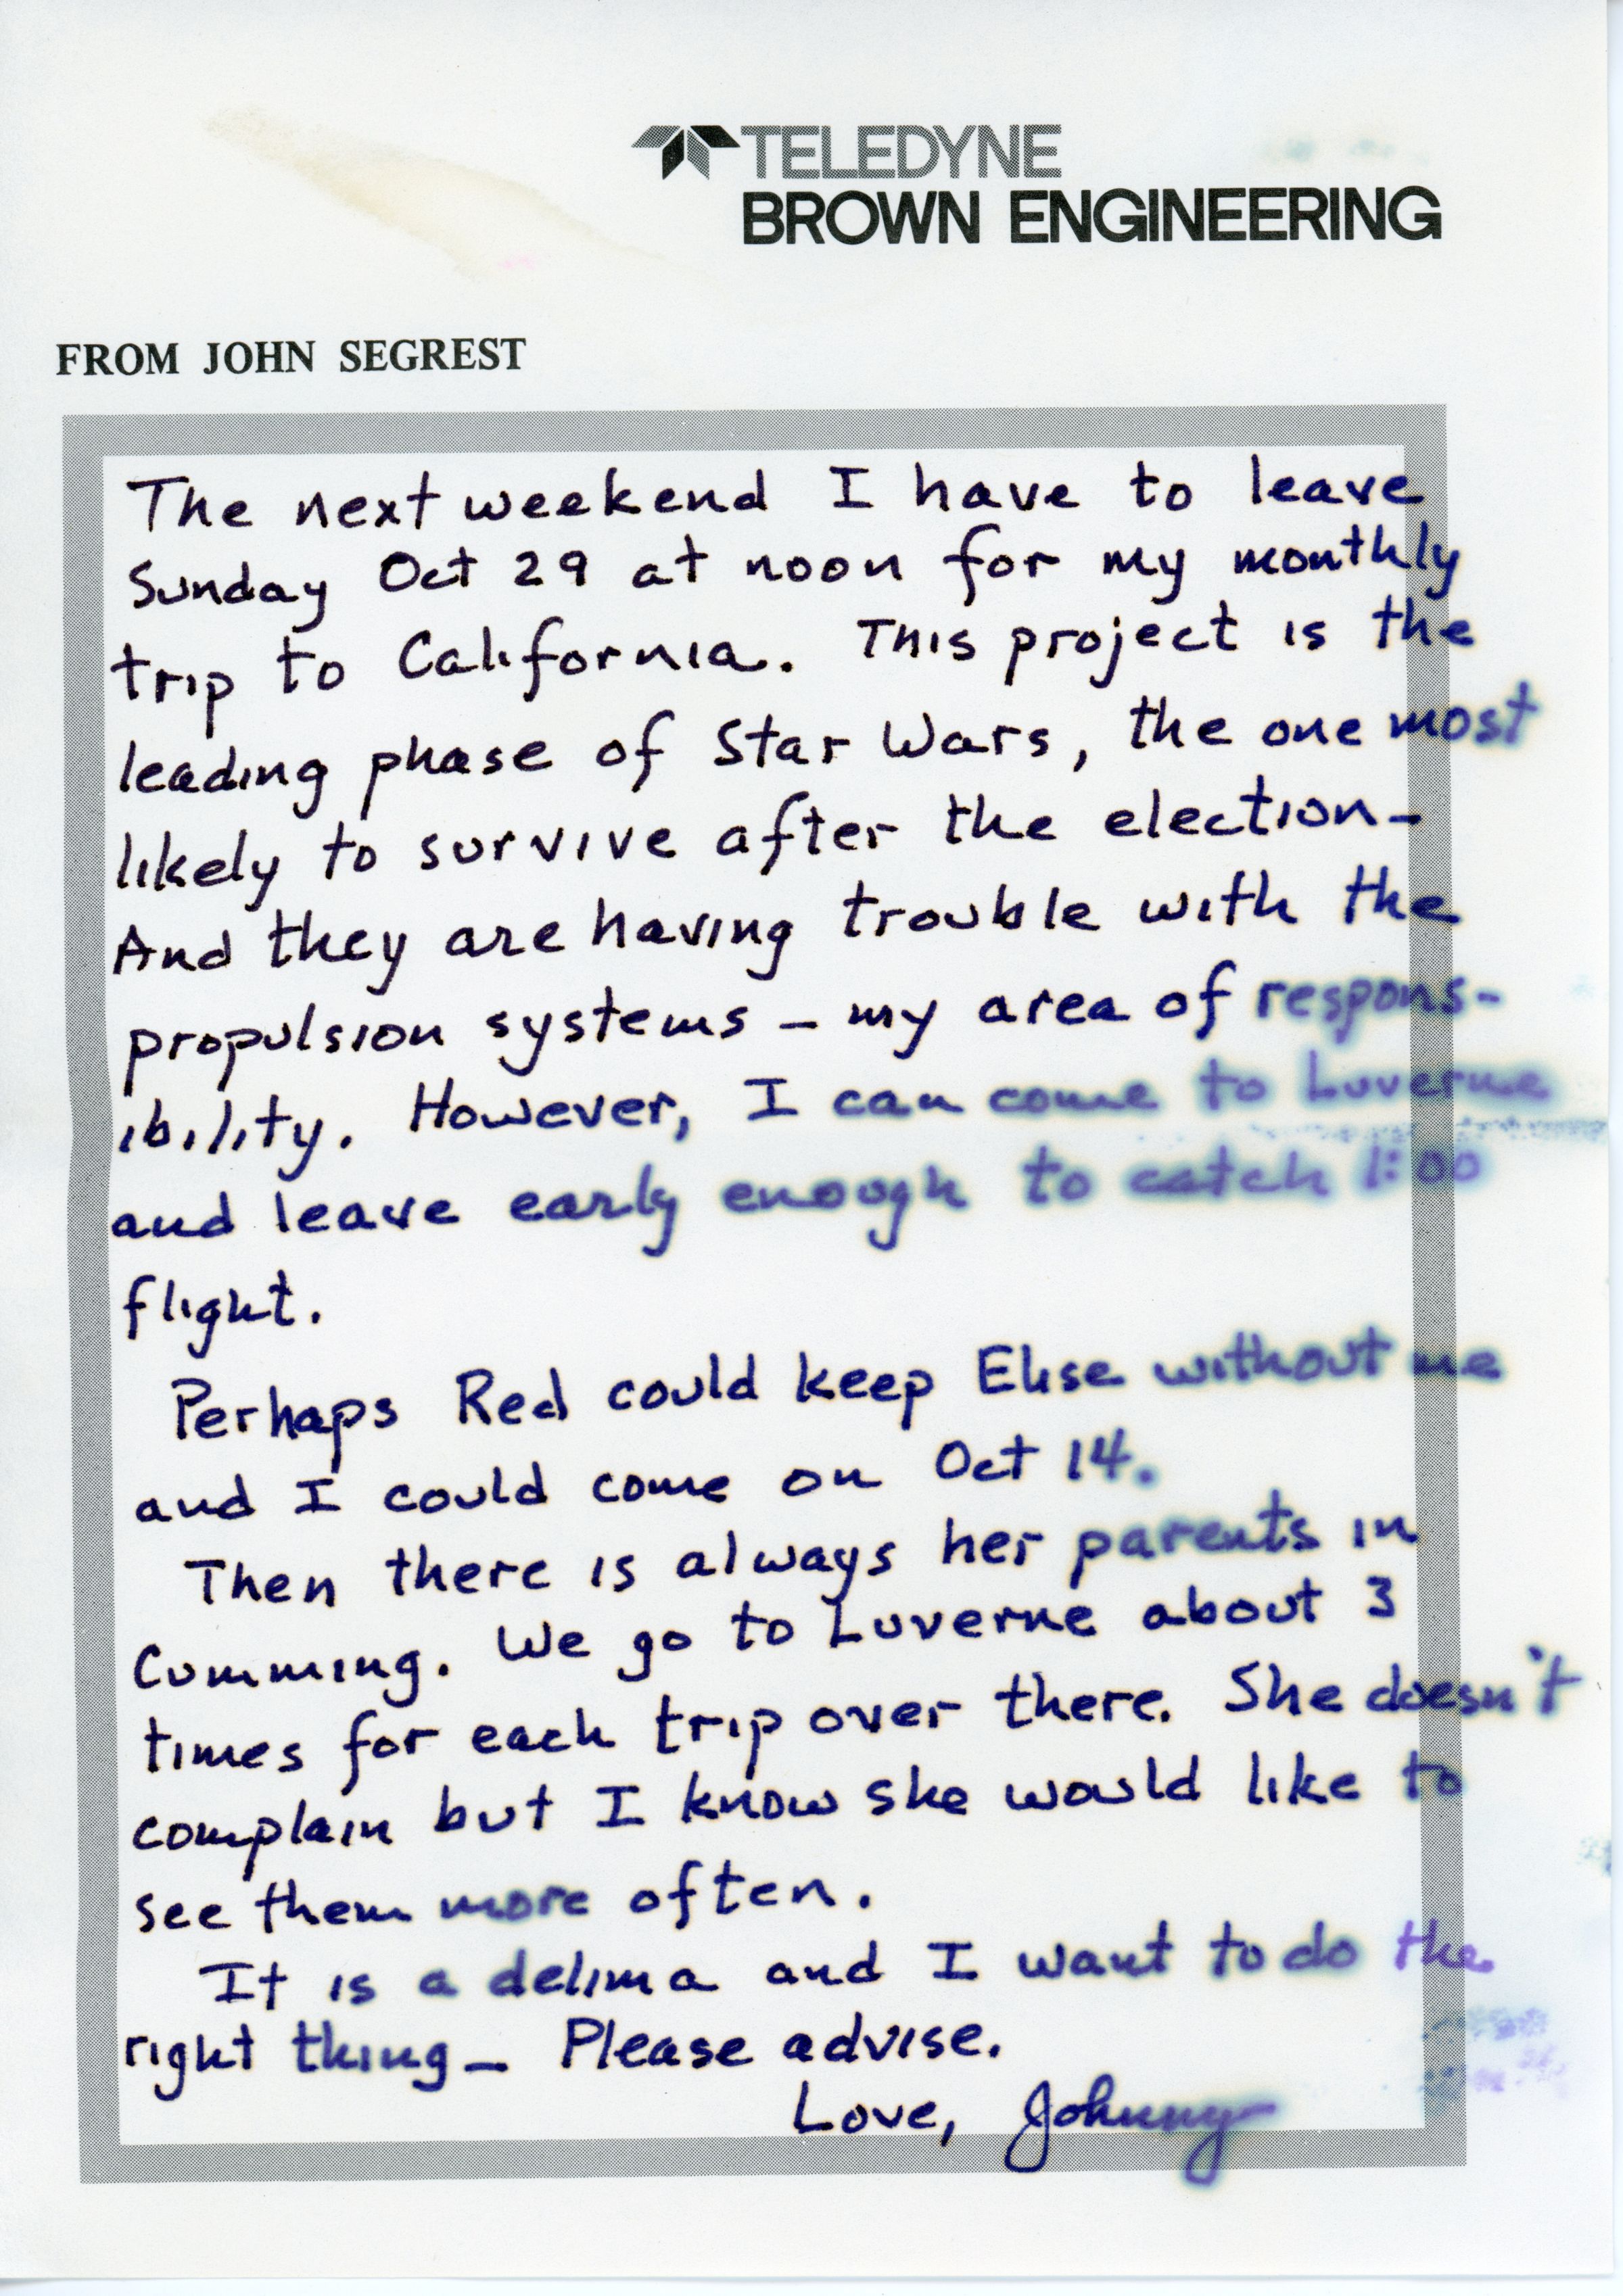 TELEDYNE
BROWN ENGINEERING
FROM JOHN SEGREST
The next weekend I have to leave
Sunday Oct 29 at noon for my monthly
trip to California. This project is the
leading phase of Star Wars, the one most
likely to survive after the election-
And they are having trouble with the
propulsion systems - my area of respons-
ibility. However, I can come to Luverne
and leave early enough to catch 1:00
flight.
Perhaps Red could keep Elise without me
and I could come on Oct 14.
Then there is always her parents in
Cumming. We go to Luverne about 3
times for each trip over there. She doesn't
complain but I know she would like to
see them more often.
It is a delima and I want to do the
right thing - Please advise.
Love, Johnny